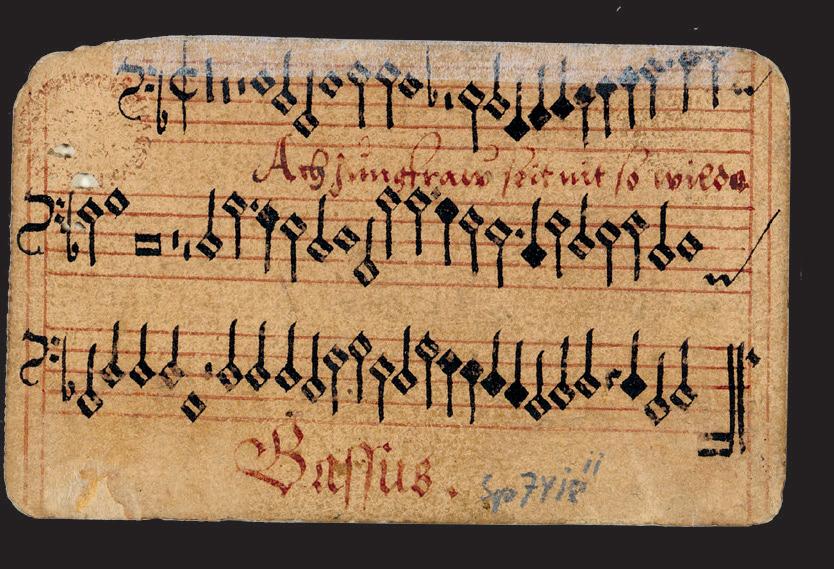 Ach Jungfraw seit nit so wilde
Bassus.